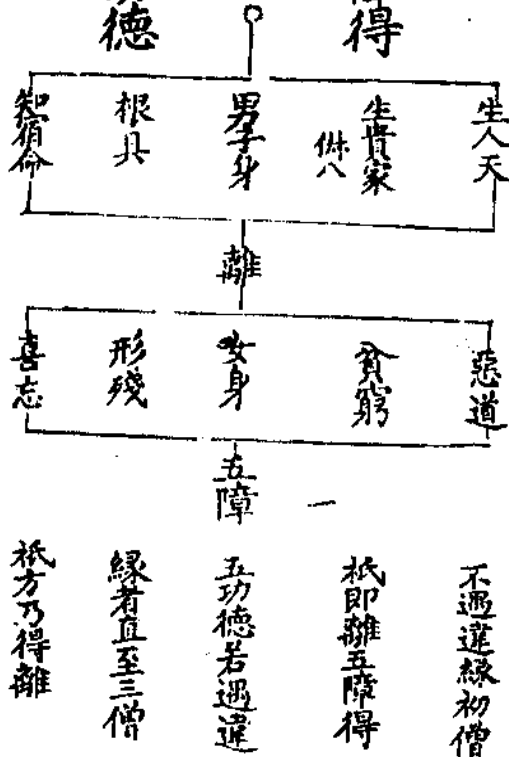 得
德
生人天
生貴家
男子身
根具
知宿命
離
惡道
貧窮
女身
形殘
喜忘
五障
不遇違緣初僧
祇即離五障得
五功德若遇違
緣者直至三僧
祇方乃得離